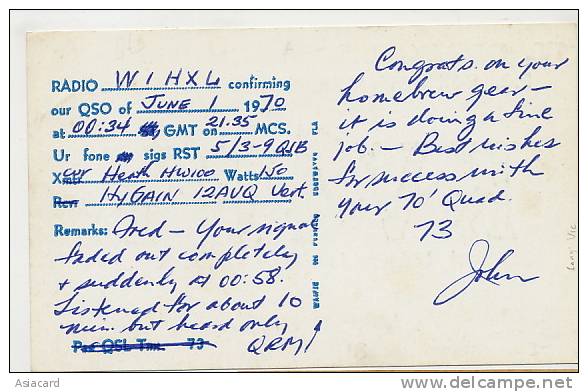 RADIO W1HXL confirming
our QSO of JUNE 1 1970
at 00:34 GMT on 21.35 MCS.
Ur fone sigs RST 5/3-9 QSB
Xcvr Heath HW100 Watts 150
Rcvr HYGAIN 12AVQ Vert.
Remarks: Fred - Your signal
faded out completely
& suddenly at 00:58.
Listened for about 10
min. but heard only
QRM!
Pse QSL Tnx 73
Congrats. on your
homebrew gear -
it is doing a fine
job. - Best wishes
for success with
your 70' Quad.
73
John
Asiacard
http://www.delcampe.net